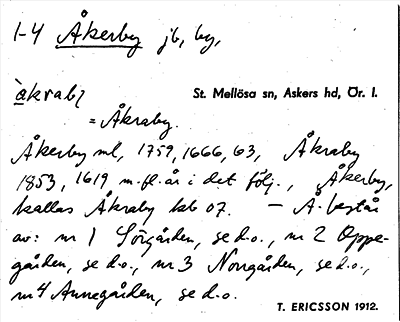 1-4 Åkerby jb, by,
àkraby
St. Mellösa sn, Askers hd, Ör. l.
= Åkraby.
Åkerby ml, 1759, 1666, 63, Åkraby
1853, 1619 m. fl. år i det följ., Åkerby,
kallas Åkraby kb 07. — Å. består
av: nr 1 Sörgården, se d.o., nr 2 Oppe-
gården, se d.o., nr 3 Norrgården, se d.o.,
nr 4 Annegården, se d.o.
T. ERICSSON 1912.